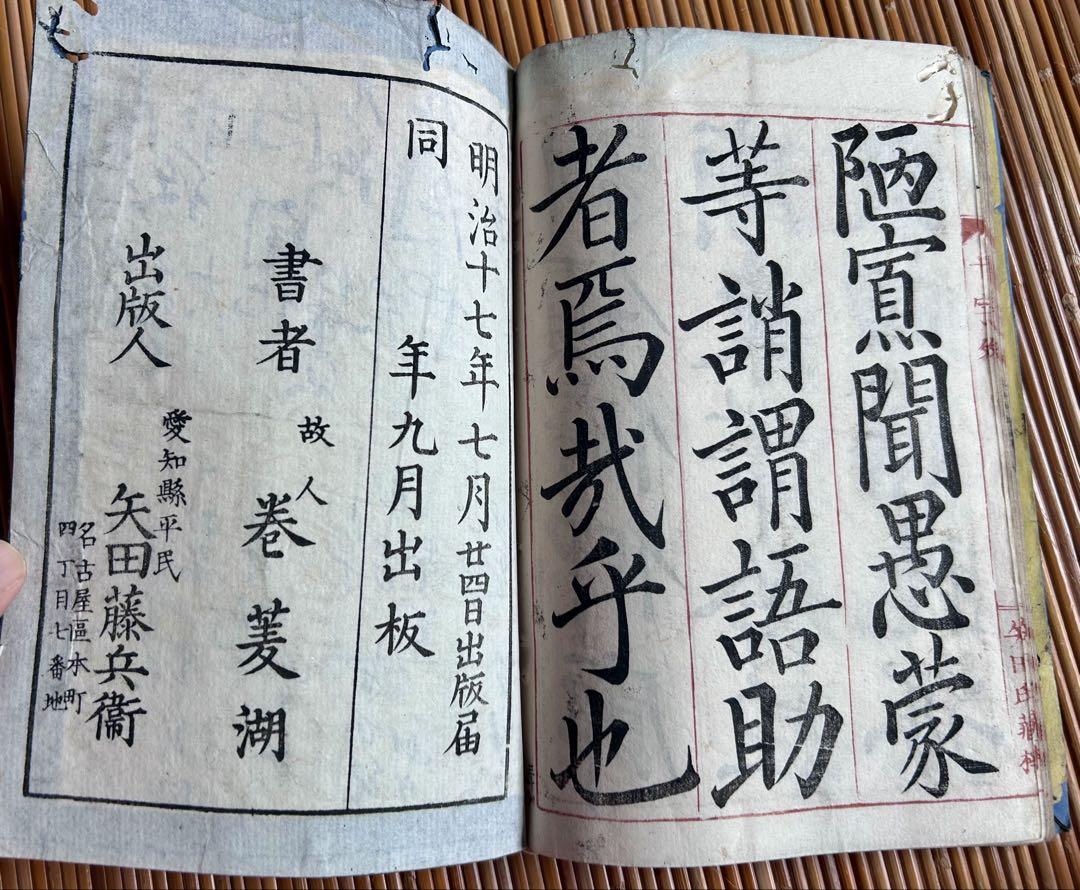 陋寡聞愚蒙
等誚謂語助
者焉哉乎也
明治十七年七月廿四日出版届
同年九月出板
書者 故人 巻菱湖
出版人 愛知縣平民 矢田藤兵衞
名古屋區本町
四丁目七番地